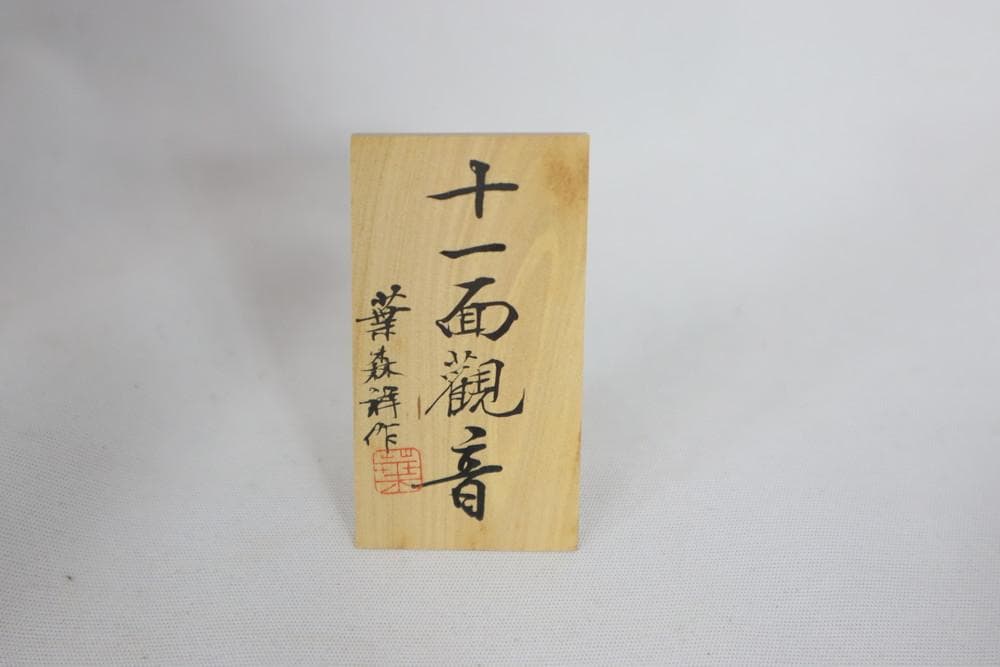 十一面觀音
葉森祥作
葉